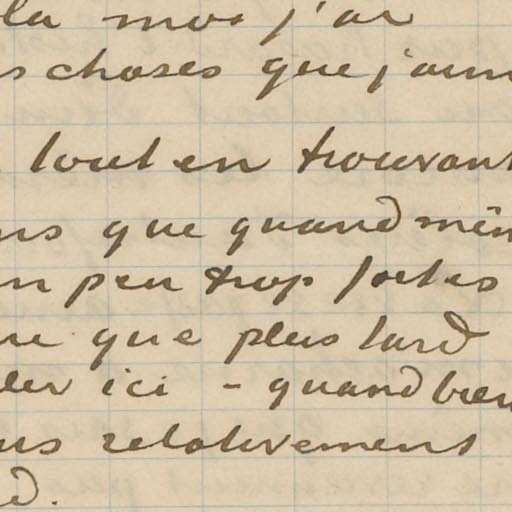 la moi j'ai
s choses que j'aim
tout en trouvant
ns que quand mêm
n peu trop fortes
ue que plus tard
ler ici - quand bien
us relativement
d.